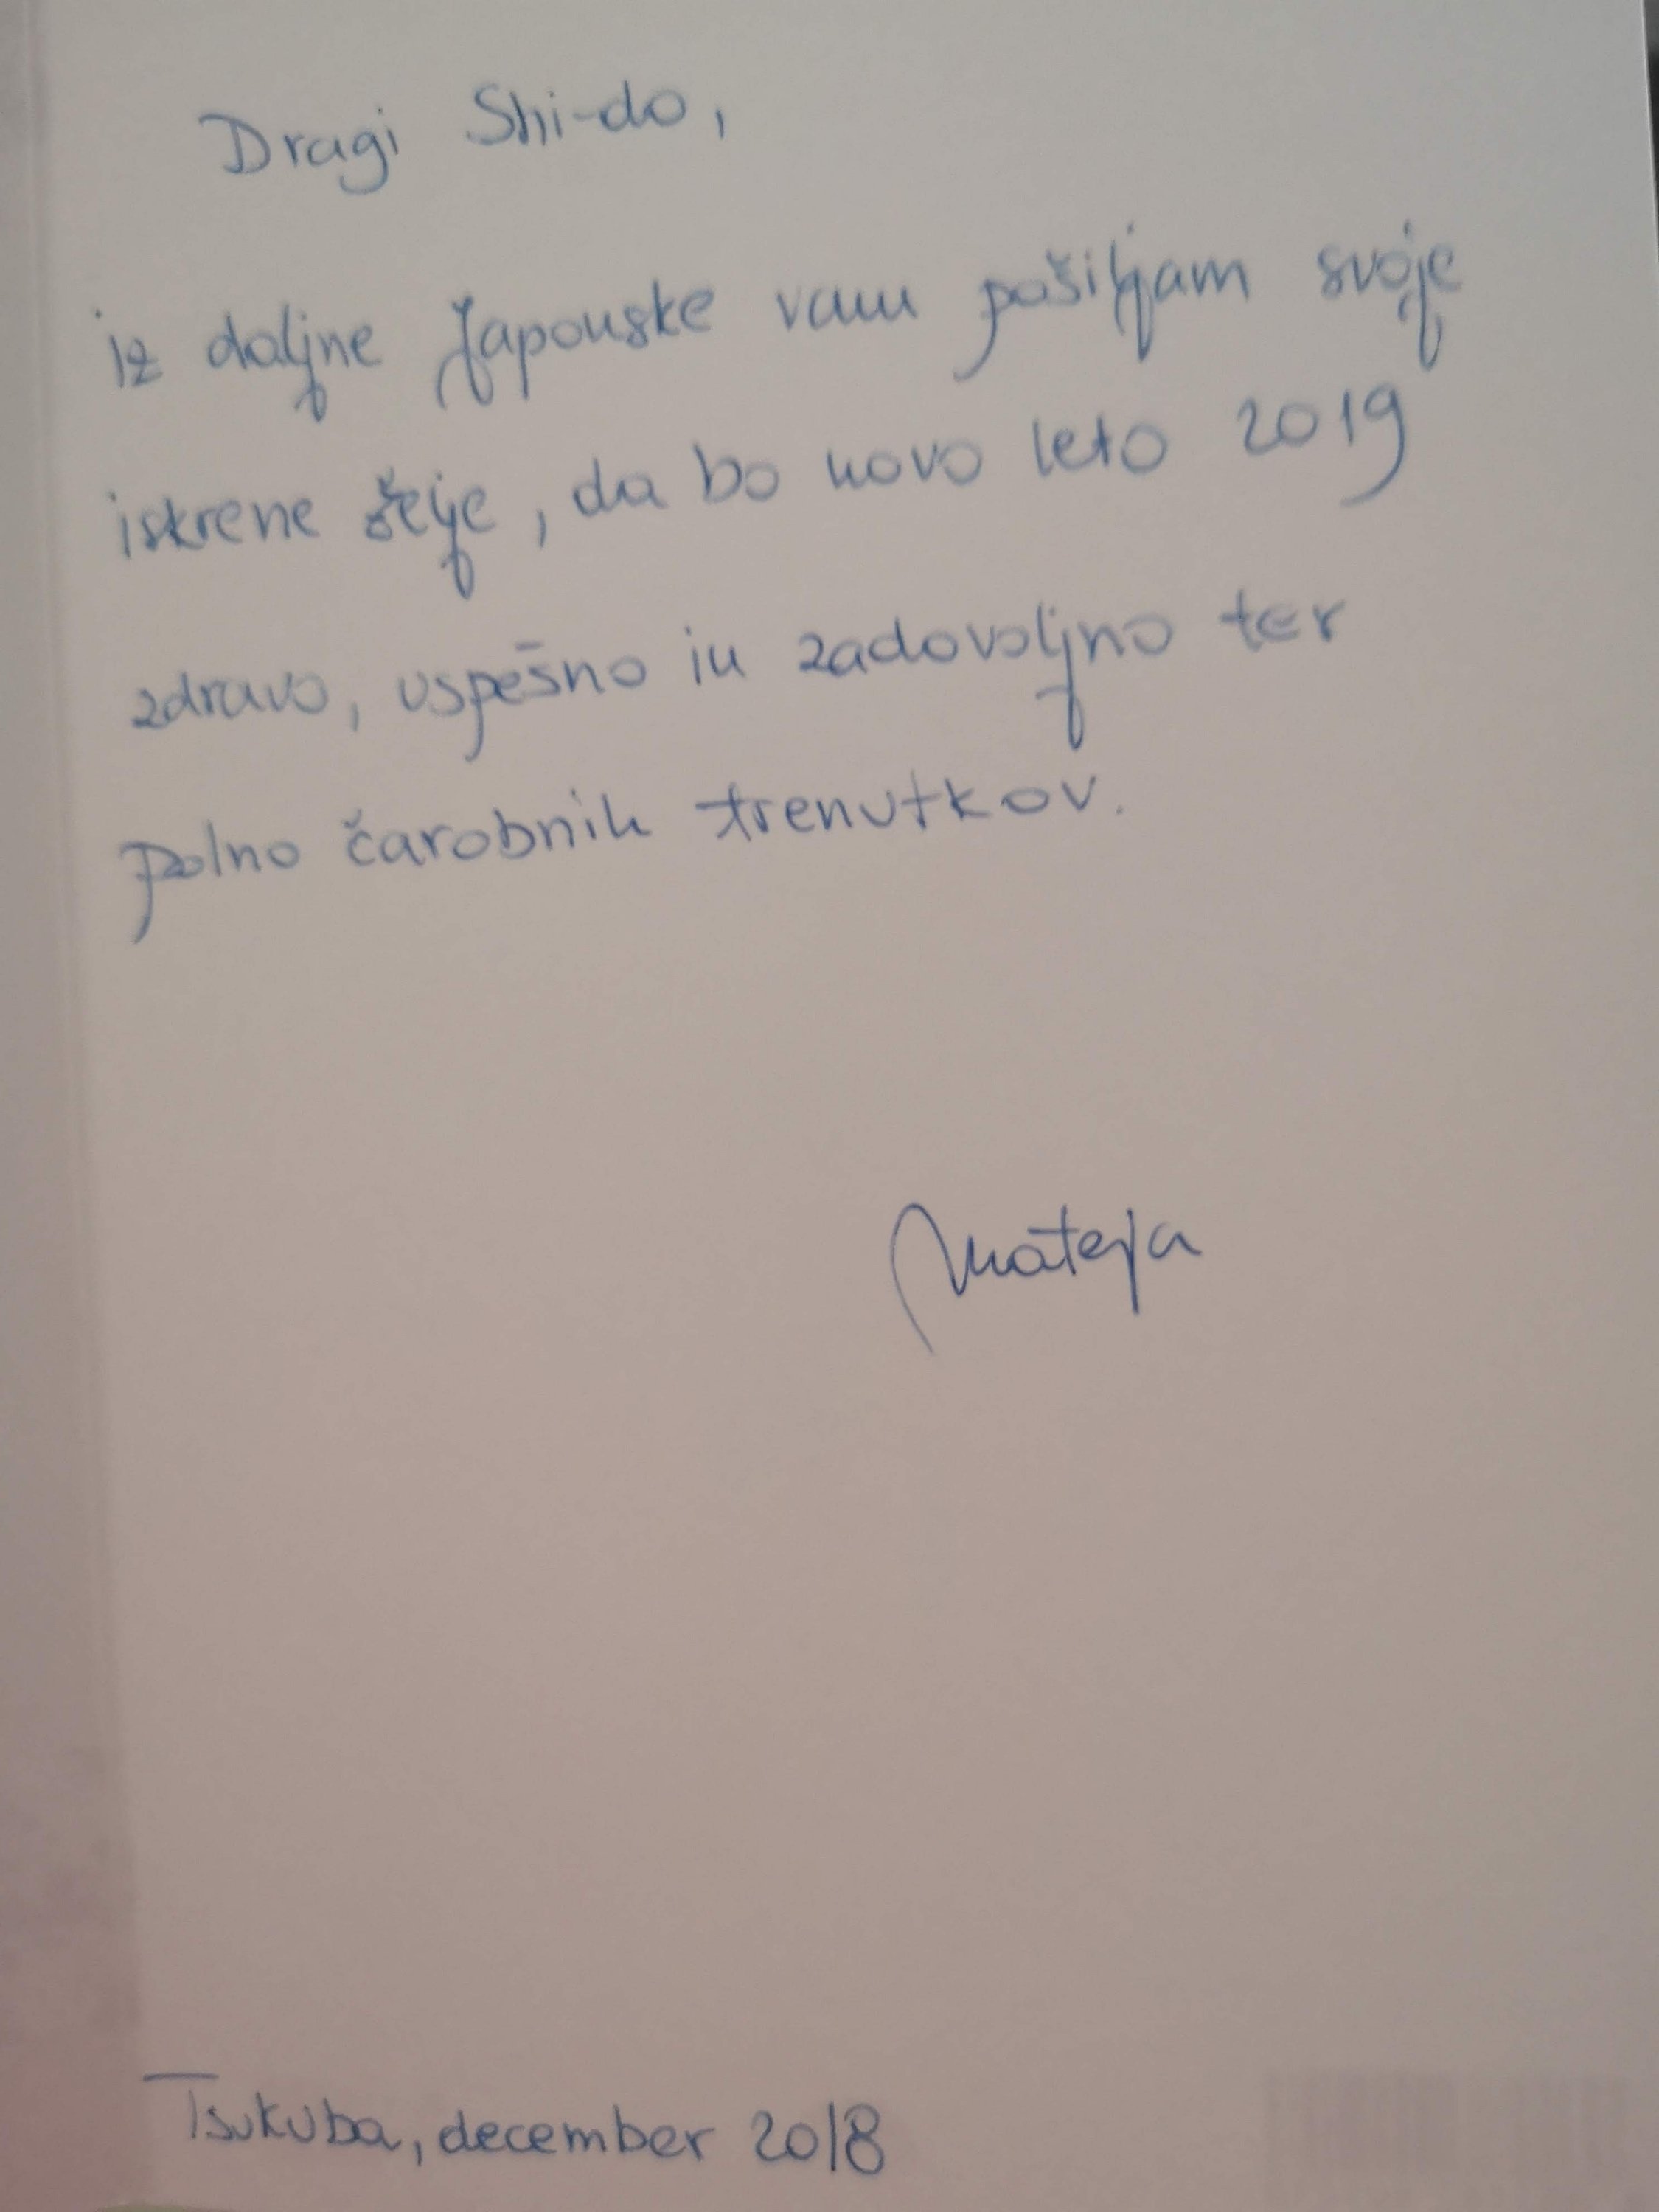 Dragi Shi-do,
iz daljne Japonske vam pošiljam svoje
iskrene želje, da bo novo leto 2019
zdravo, uspešno in zadovoljno ter
polno čarobnih trenutkov.
Mateja
Tsukuba, december 2018